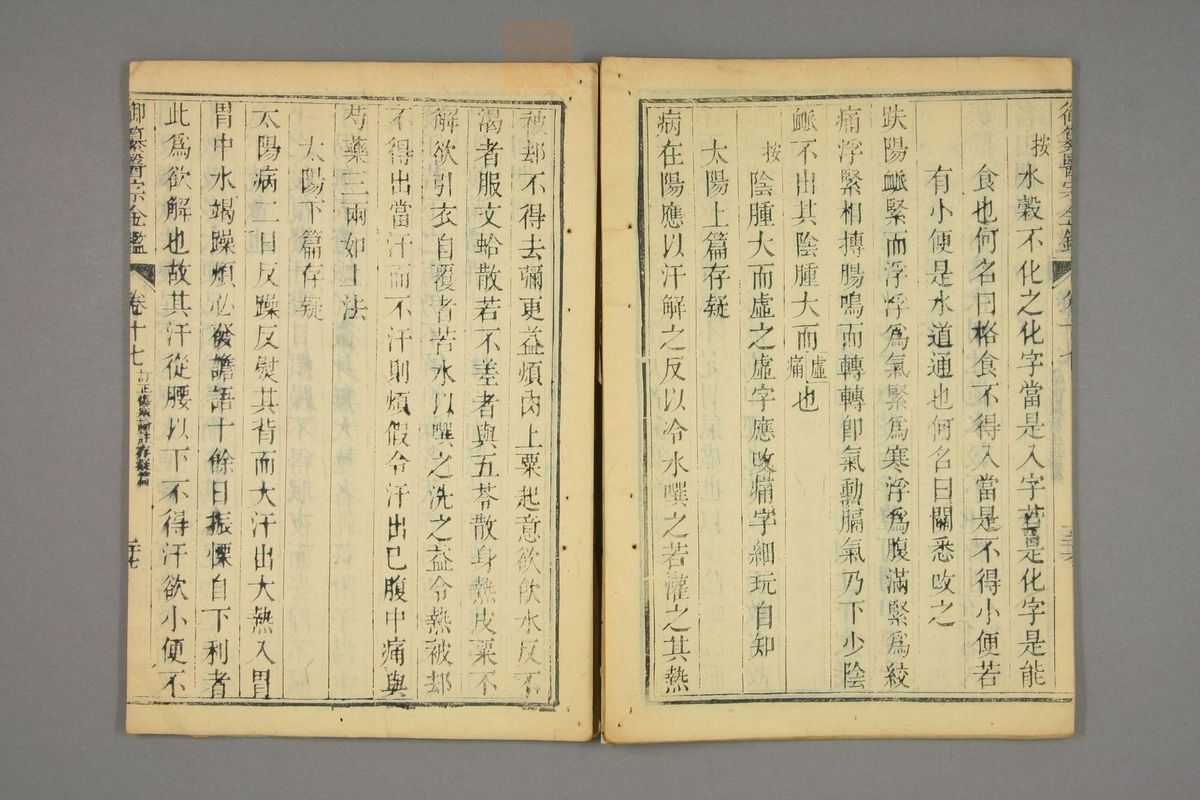 御纂醫宗金鑑
按水穀不化之化字當是入字若是化字是能
食也何名曰格食不得入當是不得小便若
有小便是水道通也何名曰關悉攺之
趺陽脈緊而浮浮爲氣緊爲寒浮爲腹滿緊爲絞
痛浮緊相摶腸鳴而轉轉卽氣動膈氣乃下少陰
脈不出其陰腫大而虛痛也
按陰腫大而虛之虛字應攺痛字細玩自知
太陽上篇存疑
病在陽應以汗解之反以冷水噀之若灌之其熱
被却不得去彌更益煩肉上粟起意欲飮水反不
渴者服文蛤散若不差者與五苓散身熱皮粟不
解欲引衣自覆者若水以噀之洗之益令熱被却
不得出當汗而不汗則煩假令汗出已腹中痛與
芍藥三兩如上法
太陽下篇存疑
太陽病二日反躁反熨其背而大汗出大熱入胃
胃中水竭躁煩必發譫語十餘日振慄自下利者
此爲欲解也故其汗從腰以下不得汗欲小便不
御纂醫宗金鑑 卷十七 訂正傷寒論註存疑篇 三十七